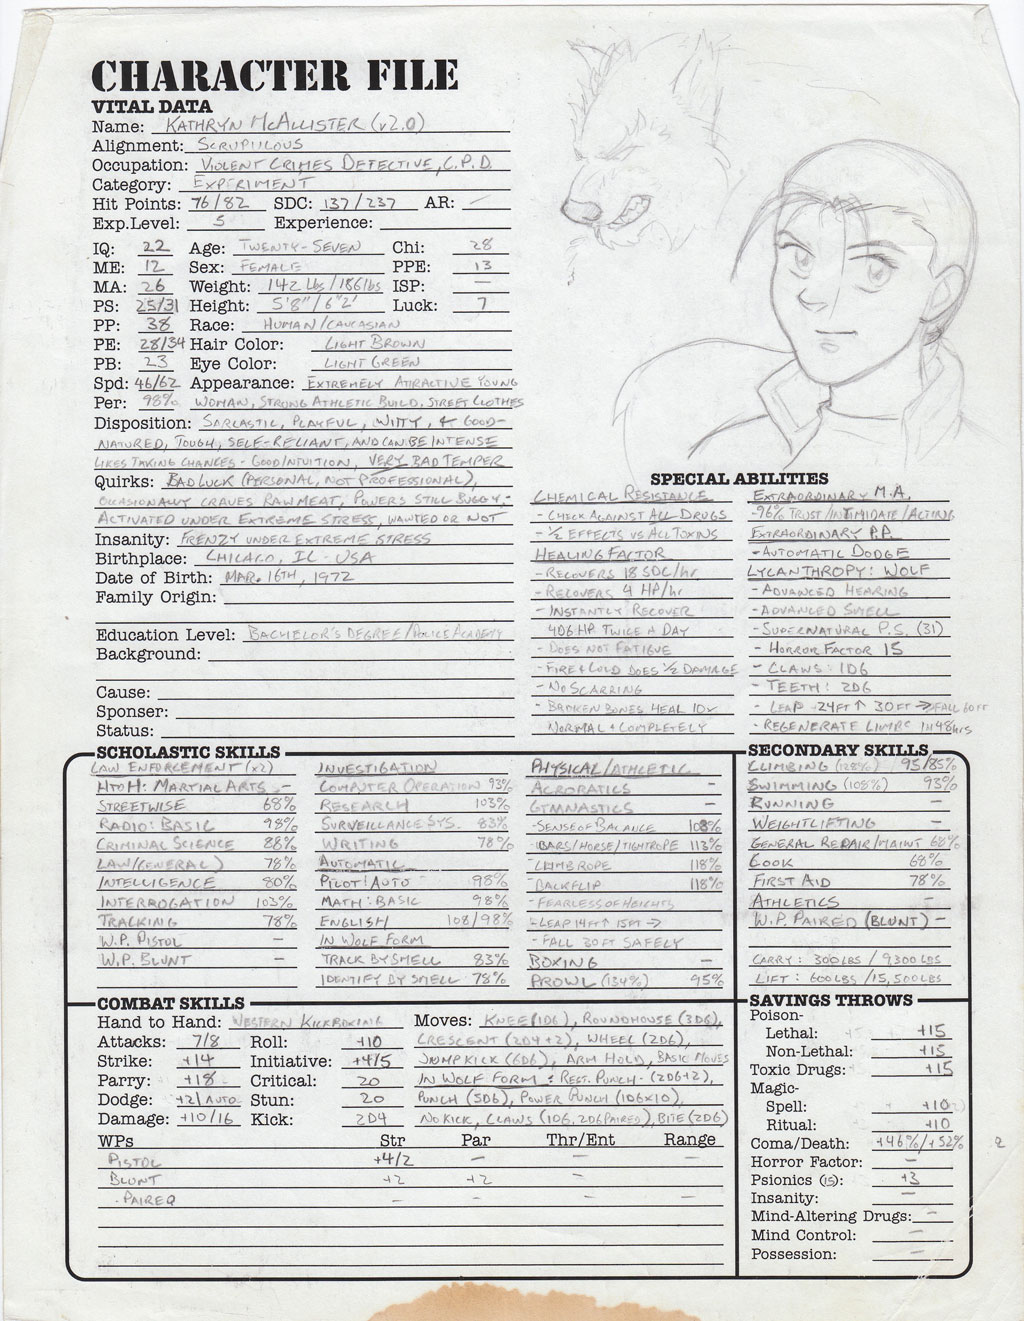 CHARACTER FILE
VITAL DATA
Name: KATHRYN McALLISTER (v2.0)
Alignment: SCRUPULOUS
Occupation: VIOLENT CRIMES DETECTIVE, C.P.D.
Category: EXPERIMENT
Hit Points: 76/82 SDC: 137/237 AR: -
Exp.Level: 5 Experience:
IQ: 22 Age: TWENTY-SEVEN Chi: 28
ME: 12 Sex: FEMALE PPE: 13
MA: 26 Weight: 142 lbs/186 lbs ISP: -
PS: 25/31 Height: 5'8"/6'2" Luck: 7
PP: 38 Race: HUMAN/CAUCASIAN
PE: 28/34 Hair Color: LIGHT BROWN
PB: 23 Eye Color: LIGHT GREEN
Spd: 46/62 Appearance: EXTREMELY ATTRACTIVE YOUNG
Per: 98% WOMAN, STRONG ATHLETIC BUILD, STREET CLOTHES
Disposition: SARCASTIC, PLAYFUL, WITTY, & GOOD-
NATURED, TOUGH, SELF-RELIANT, AND CAN BE INTENSE
LIKES TAKING CHANCES - GOOD INTUITION, VERY BAD TEMPER
Quirks: BAD LUCK (PERSONAL, NOT PROFESSIONAL),
OCCASIONALLY CRAVES RAW MEAT, POWERS STILL BUGGY,-
ACTIVATED UNDER EXTREME STRESS, WANTED OR NOT
Insanity: FRENZY UNDER EXTREME STRESS
Birthplace: CHICAGO, IL - USA
Date of Birth: MAR. 16TH, 1972
Family Origin:
Education Level: BACHELOR'S DEGREE/POLICE ACADEMY
Background:
Cause:
Sponser:
Status:
SPECIAL ABILITIES
CHEMICAL RESISTANCE
- CHECK AGAINST ALL DRUGS
- 1/2 EFFECTS VS ALL TOXINS
HEALING FACTOR
- RECOVERS 18 SDC/hr
- RECOVERS 4 HP/hr
- INSTANTLY RECOVER
4D6 HP TWICE A DAY
- DOES NOT FATIGUE
- FIRE & COLD DOES 1/2 DAMAGE
- NO SCARRING
- BROKEN BONES HEAL 10x
NORMAL & COMPLETELY
EXTRAORDINARY M.A.
- 96% TRUST/INTIMIDATE/ACTING
EXTRAORDINARY P.P.
- AUTOMATIC DODGE
LYCANTHROPY: WOLF
- ADVANCED HEARING
- ADVANCED SMELL
- SUPERNATURAL P.S. (31)
- HORROR FACTOR 15
- CLAWS: 1D6
- TEETH: 2D6
- LEAP 24FT↑ 30FT → FALL 60FT
- REGENERATE LIMBS IN 48hrs
SCHOLASTIC SKILLS
LAW ENFORCEMENT (x2)
HTOH: MARTIAL ARTS -
STREETWISE 68%
RADIO: BASIC 98%
CRIMINAL SCIENCE 88%
LAW (GENERAL) 78%
INTELLIGENCE 80%
INTERROGATION 103%
TRACKING 78%
W.P. PISTOL -
W.P. BLUNT -
INVESTIGATION
COMPUTER OPERATION 93%
RESEARCH 103%
SURVEILLANCE SYS. 83%
WRITING 78%
AUTOMATIC
PILOT: AUTO 98%
MATH: BASIC 98%
ENGLISH 108/98%
IN WOLF FORM
TRACK BY SMELL 83%
IDENTIFY BY SMELL 78%
PHYSICAL/ATHLETIC
ACROBATICS -
GYMNASTICS -
- SENSE OF BALANCE 108%
- BARS/HORSE/TIGHTROPE 113%
- CLIMB ROPE 118%
- BACKFLIP 118%
- FEARLESS OF HEIGHTS
- LEAP 14FT↑ 15FT→
- FALL 30FT SAFELY
BOXING -
PROWL (134%) 95%
SECONDARY SKILLS
CLIMBING (128%) 95/85%
SWIMMING (108%) 93%
RUNNING -
WEIGHTLIFTING -
GENERAL REPAIR/MAINT 68%
COOK 68%
FIRST AID 78%
ATHLETICS -
W.P. PAIRED (BLUNT) -
CARRY: 300 LBS / 9300 LBS
LIFT: 600 LBS / 15,500 LBS
COMBAT SKILLS
Hand to Hand: WESTERN KICKBOXING
Attacks: 7/8 Roll: +10
Strike: +14 Initiative: +4/5
Parry: +18 Critical: 20
Dodge: +21/AUTO Stun: 20
Damage: +10/16 Kick: 2D4
Moves: KNEE (1D6), ROUNDHOUSE (3D6),
CRESCENT (2D4+2), WHEEL (2D6),
JUMP KICK (6D6), ARM HOLD, BASIC MOVES
IN WOLF FORM: REST. PUNCH - (2D6+2),
PUNCH (5D6), POWER PUNCH (1D6x10),
NO KICK, CLAWS (1D6, 2D6 PAIRED), BITE (2D6)
WPs Str Par Thr/Ent Range
PISTOL +4/2 - - -
BLUNT +2 +2 - -
- PAIRED - - - -
SAVINGS THROWS
Poison-
Lethal: +15
Non-Lethal: +15
Toxic Drugs: +15
Magic-
Spell: +10
Ritual: +10
Coma/Death: +46%/+52%
Horror Factor: -
Psionics (15): +3
Insanity: -
Mind-Altering Drugs: -
Mind Control: -
Possession: -